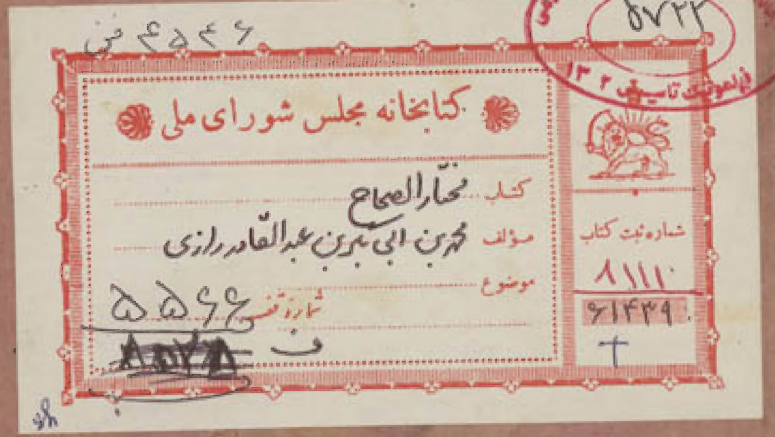 ۴۵۴۶
۵۷۲۲
کتابخانه مجلس شورای ملی
کتاب مختار الصحاح
مؤلف محمد بن ابی بکر بن عبدالقادر رازی
موضوع
شماره قفسه ۵۵۶۶
ف
شماره ثبت کتاب
۸۱۱۱۰
۶۱۴۳۹